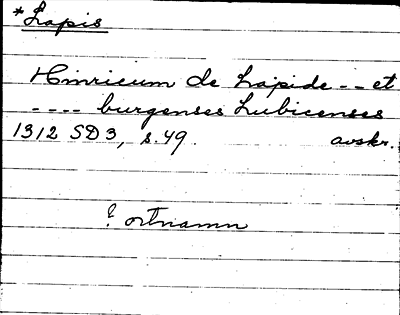 *Lapis
Hinricum de Lapide -- et
---- burgenses Lubicenses
1312 SD3, s. 49. avskr.
? ortnamn